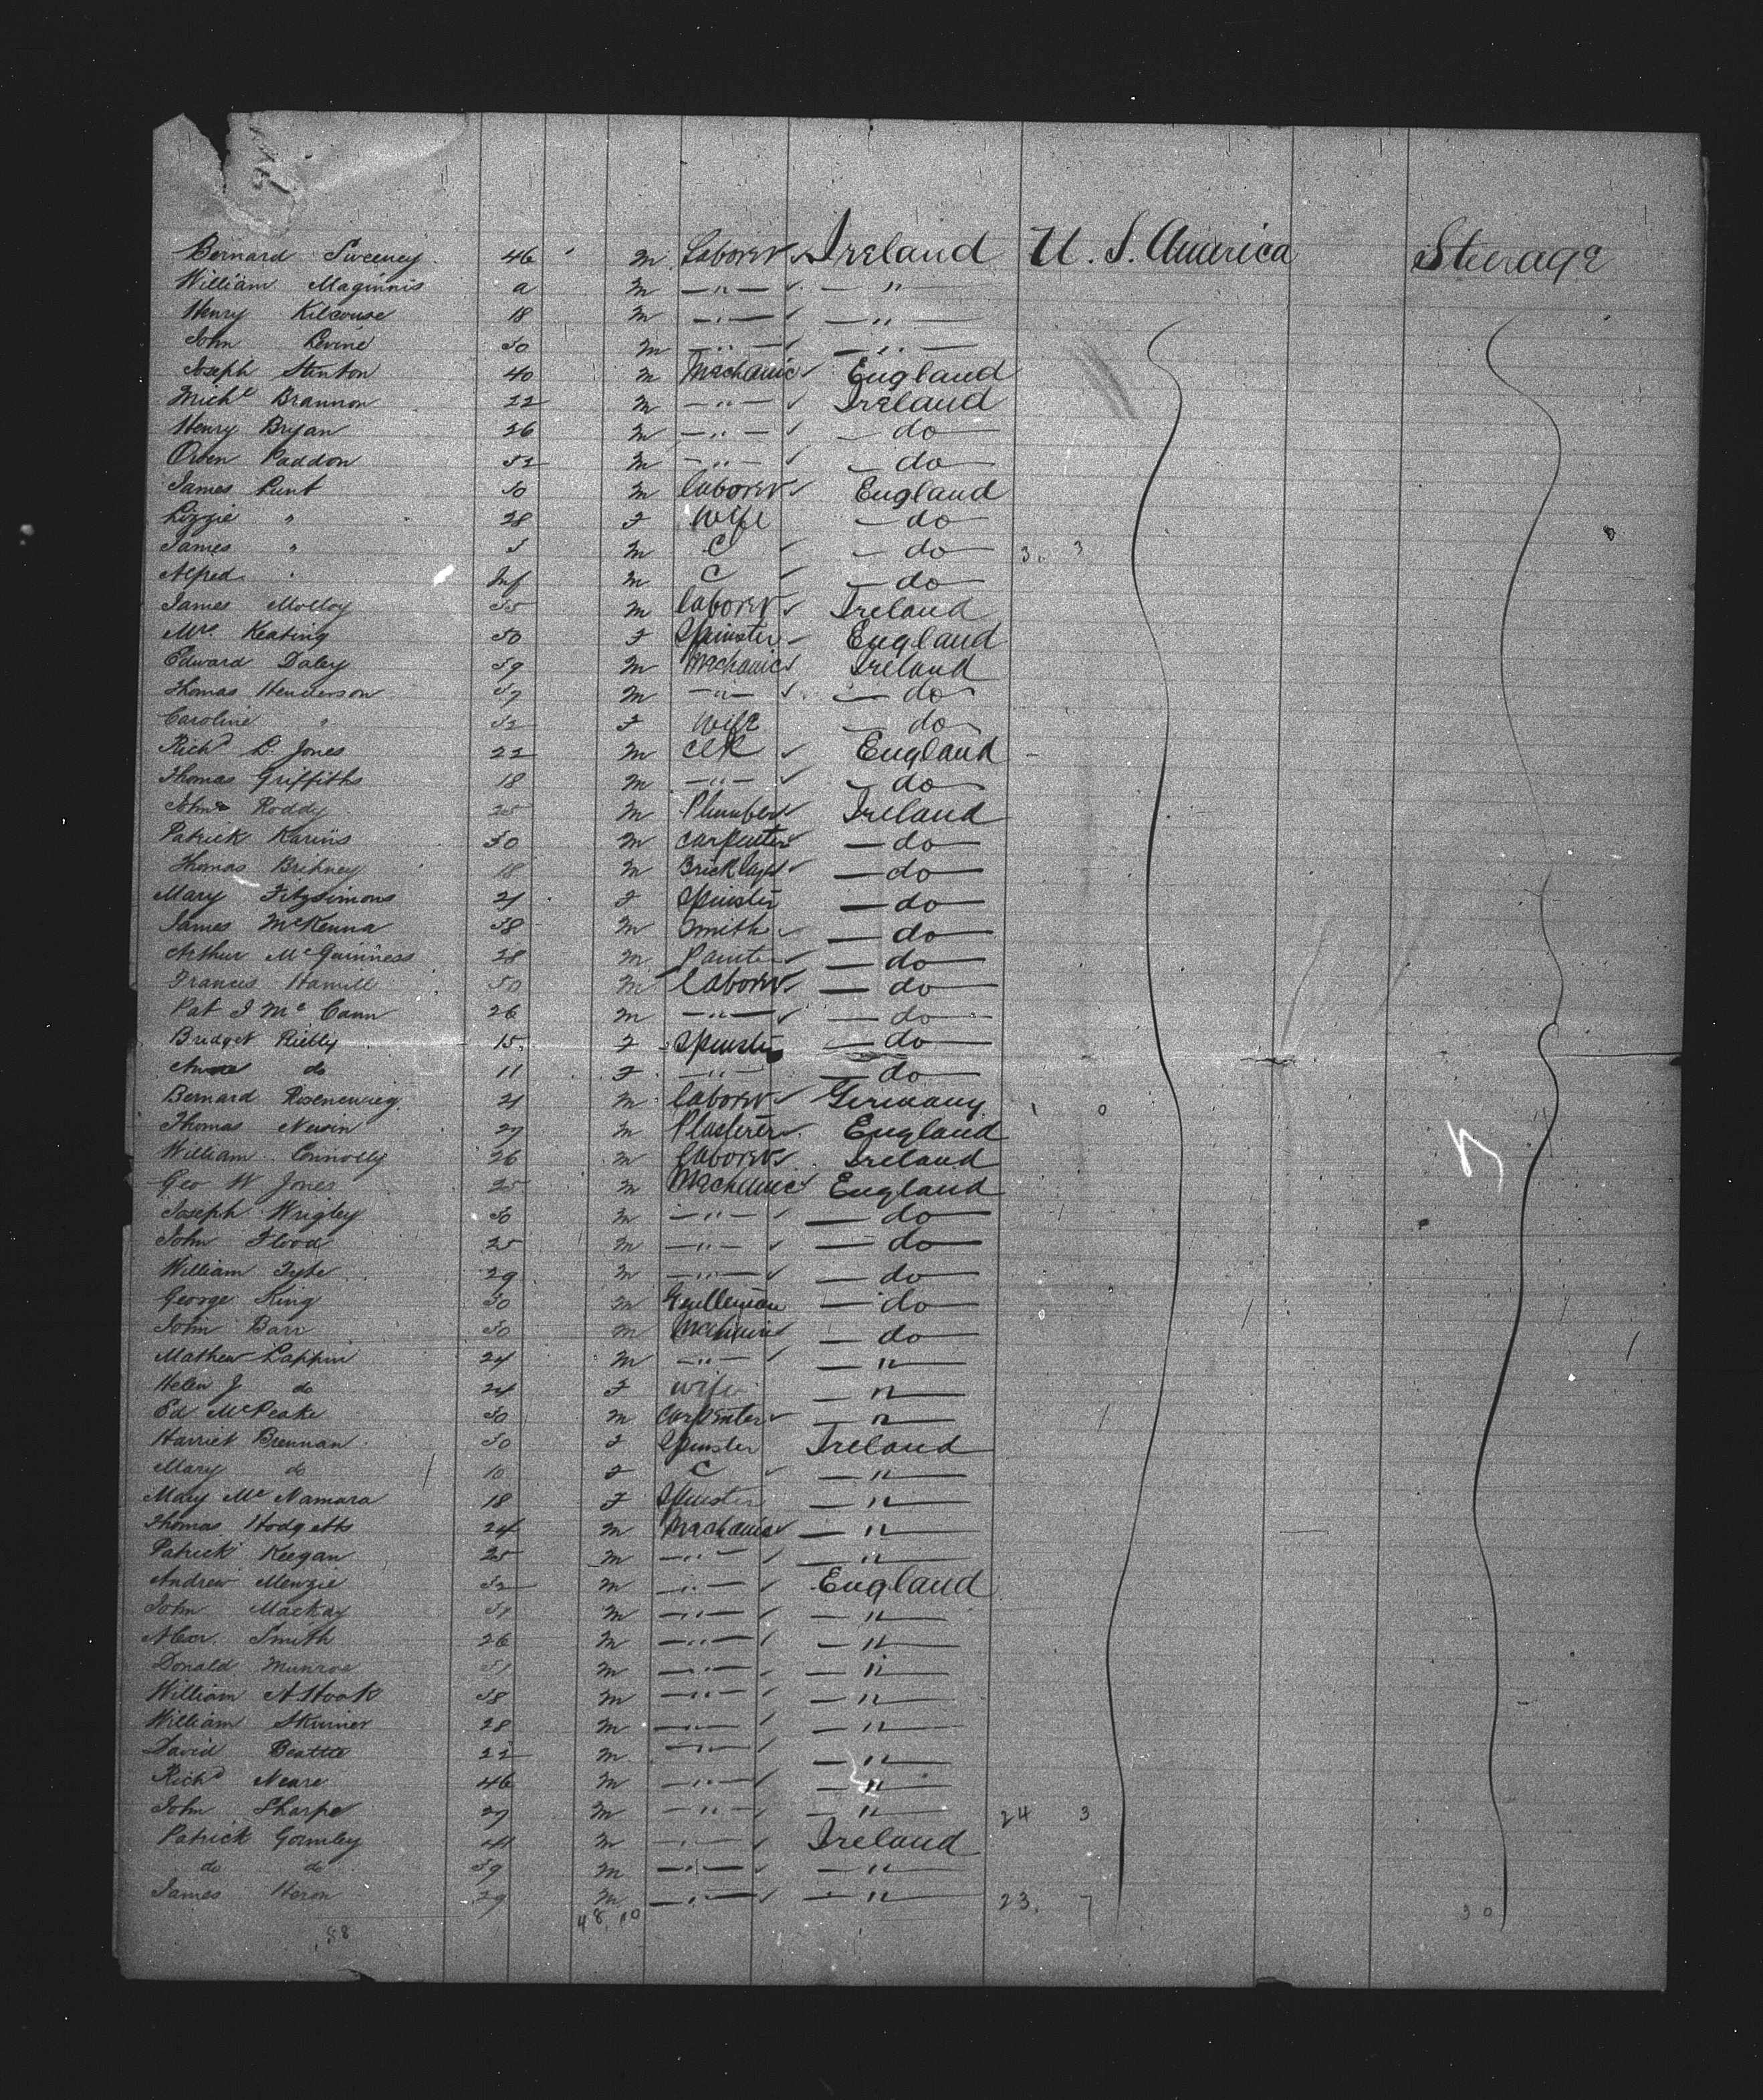 Bernard Sweeney 46 m Laborer Ireland U. S. America Steerage
William Maginnis a m " "
Henry Kilcourse 18 m " "
John Levine 30 m " "
Joseph Stenton 40 m Mechanic England
Michl Brannon 22 m " Ireland
Henry Bryan 26 m " do
Owen Paddon 32 m " do
James Lunt 30 m laborer England
Lizzie " 28 F Wife do
James " 3 m C do 3. 3
Alfred " Inf m C do
James Molloy 35 m laborer Ireland
Mrs Keating 50 F Spinster England
Edward Daley 39 m Mechanic Ireland
Thomas Henderson 37 m " do
Caroline " 32 F Wife do
Richd L. Jones 22 m clk England
Thomas Griffiths 18 m " do
John Roddy 25 m Plumber Ireland
Patrick Karins 30 m carpenter do
Thomas 18 m Bricklayr do
Mary Fitzsimons 21 F Spinster do
James McKenna 38 m Smith do
Arthur McGuinness 28 m Painter do
Francis Hamill 50 m laborer do
Pat J McCann 26 m " do
Bridget Rielly 15 F Spinster do
do 11 F " do
Bernard 21 m laborer Germany 1 0
Thomas 27 m Plasterer England
William Connolly 26 m laborer Ireland
Geo W Jones 25 m Mechanic England
Joseph Wrigley 30 m " do
John Flood 25 m " do
William 29 m " do
George King 30 m Gentleman do
John Barr 30 m Mechanic do
Mathew Lappin 24 m " "
Helen J do 24 F wife "
Ed McPeake 30 m carpenter "
Harriet Brennan 30 F Spinster Ireland
Mary do 10 F C "
Mary McNamara 18 F Spinster "
Thomas Hodgetts 24 m Mechanic "
Patrick Keegan 25 m " "
Andrew Menzie 32 m " England
John Mackay 31 m " "
Alexr. Smith 26 m " "
Donald Munroe 31 m " "
William A Hook 38 m " "
William Skinner 28 m " "
David Beattie 22 m " "
Richd Neare 46 m " "
John Sharpe 27 m " " 24 3
Patrick Gormley 41 m " Ireland
do do 39 m " "
James Heron 29 m " " 23. 7
48. 10 30
58